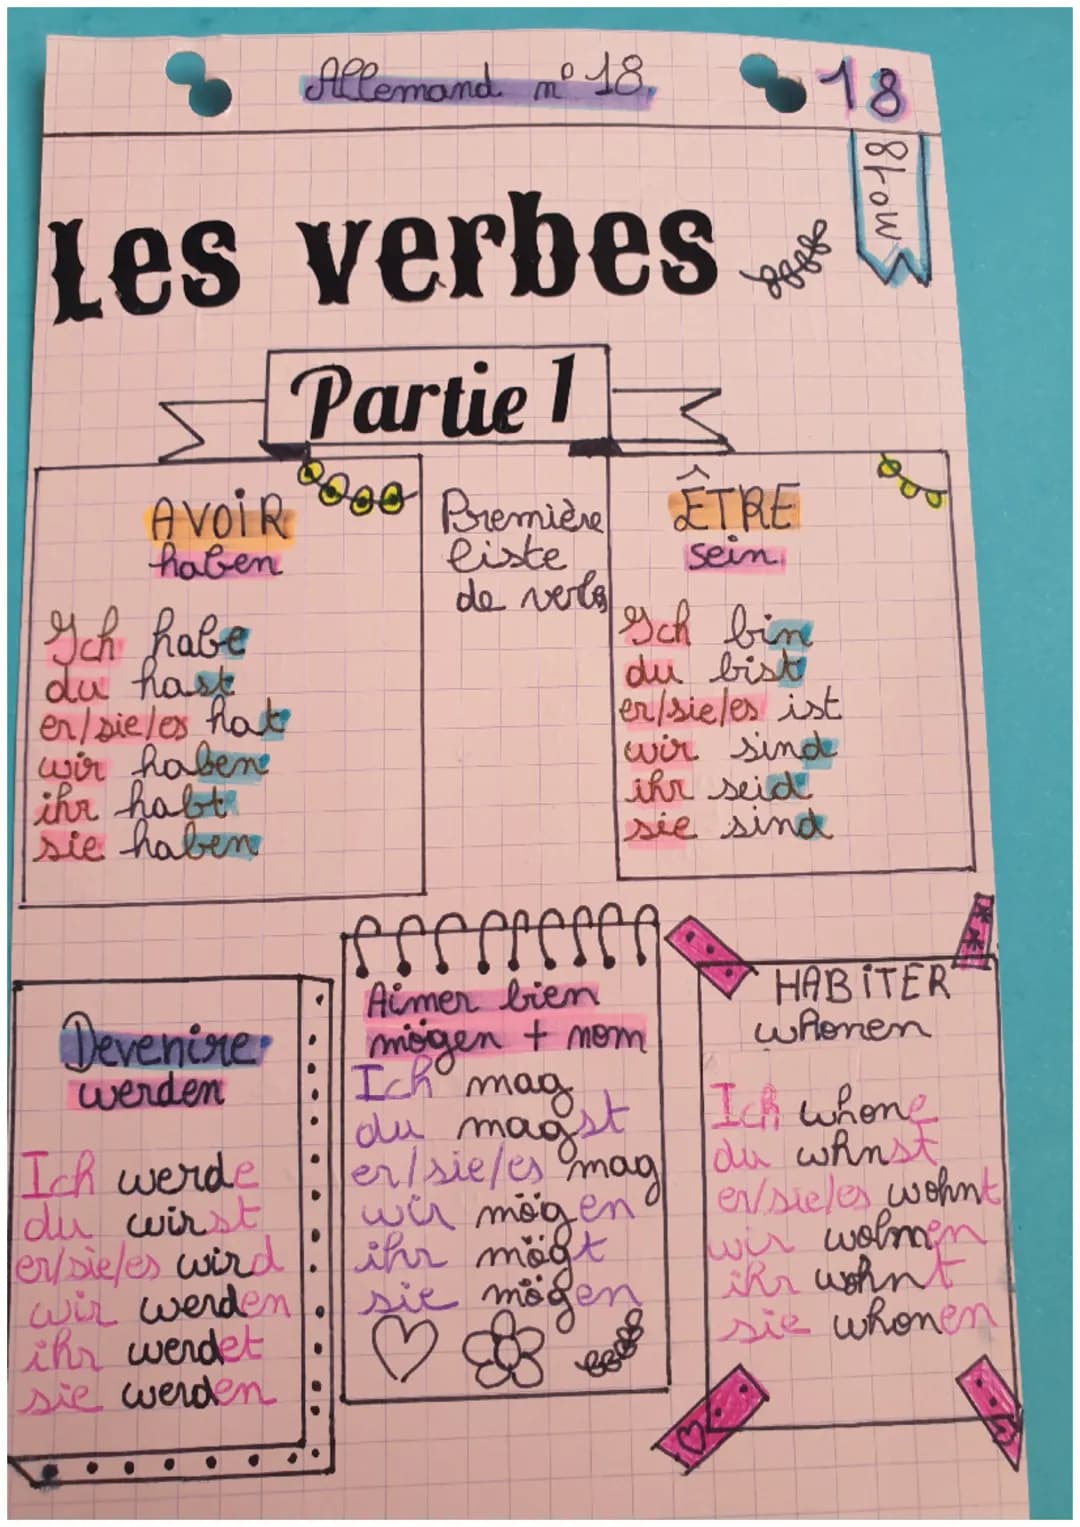 Allemand n° 18.
18
mot8
Les verbes
Partie 1
AVOIR
haben
Ich habe
du hast
er/sie/es hat
wir haben
ihr habt
sie haben
Première
liste
de verbs
ÊTRE
sein.
Ich bin
du bist
er/sie/es ist
wir sind
ihr seid
sie sind
Devenire
werden
Ich werde
du wirst
er/sie/es wird
wir werden
ihr werdet
sie werden
Aimer bien
mögen + nom
Ich mag
du magst
er/sie/es mag
wir mögen
ihr mögt
sie mögen
HABITER
whonen
Ich whone
du whnst
er/sie/es wohnt
wir wohnen
ihr wohnt
sie whonen